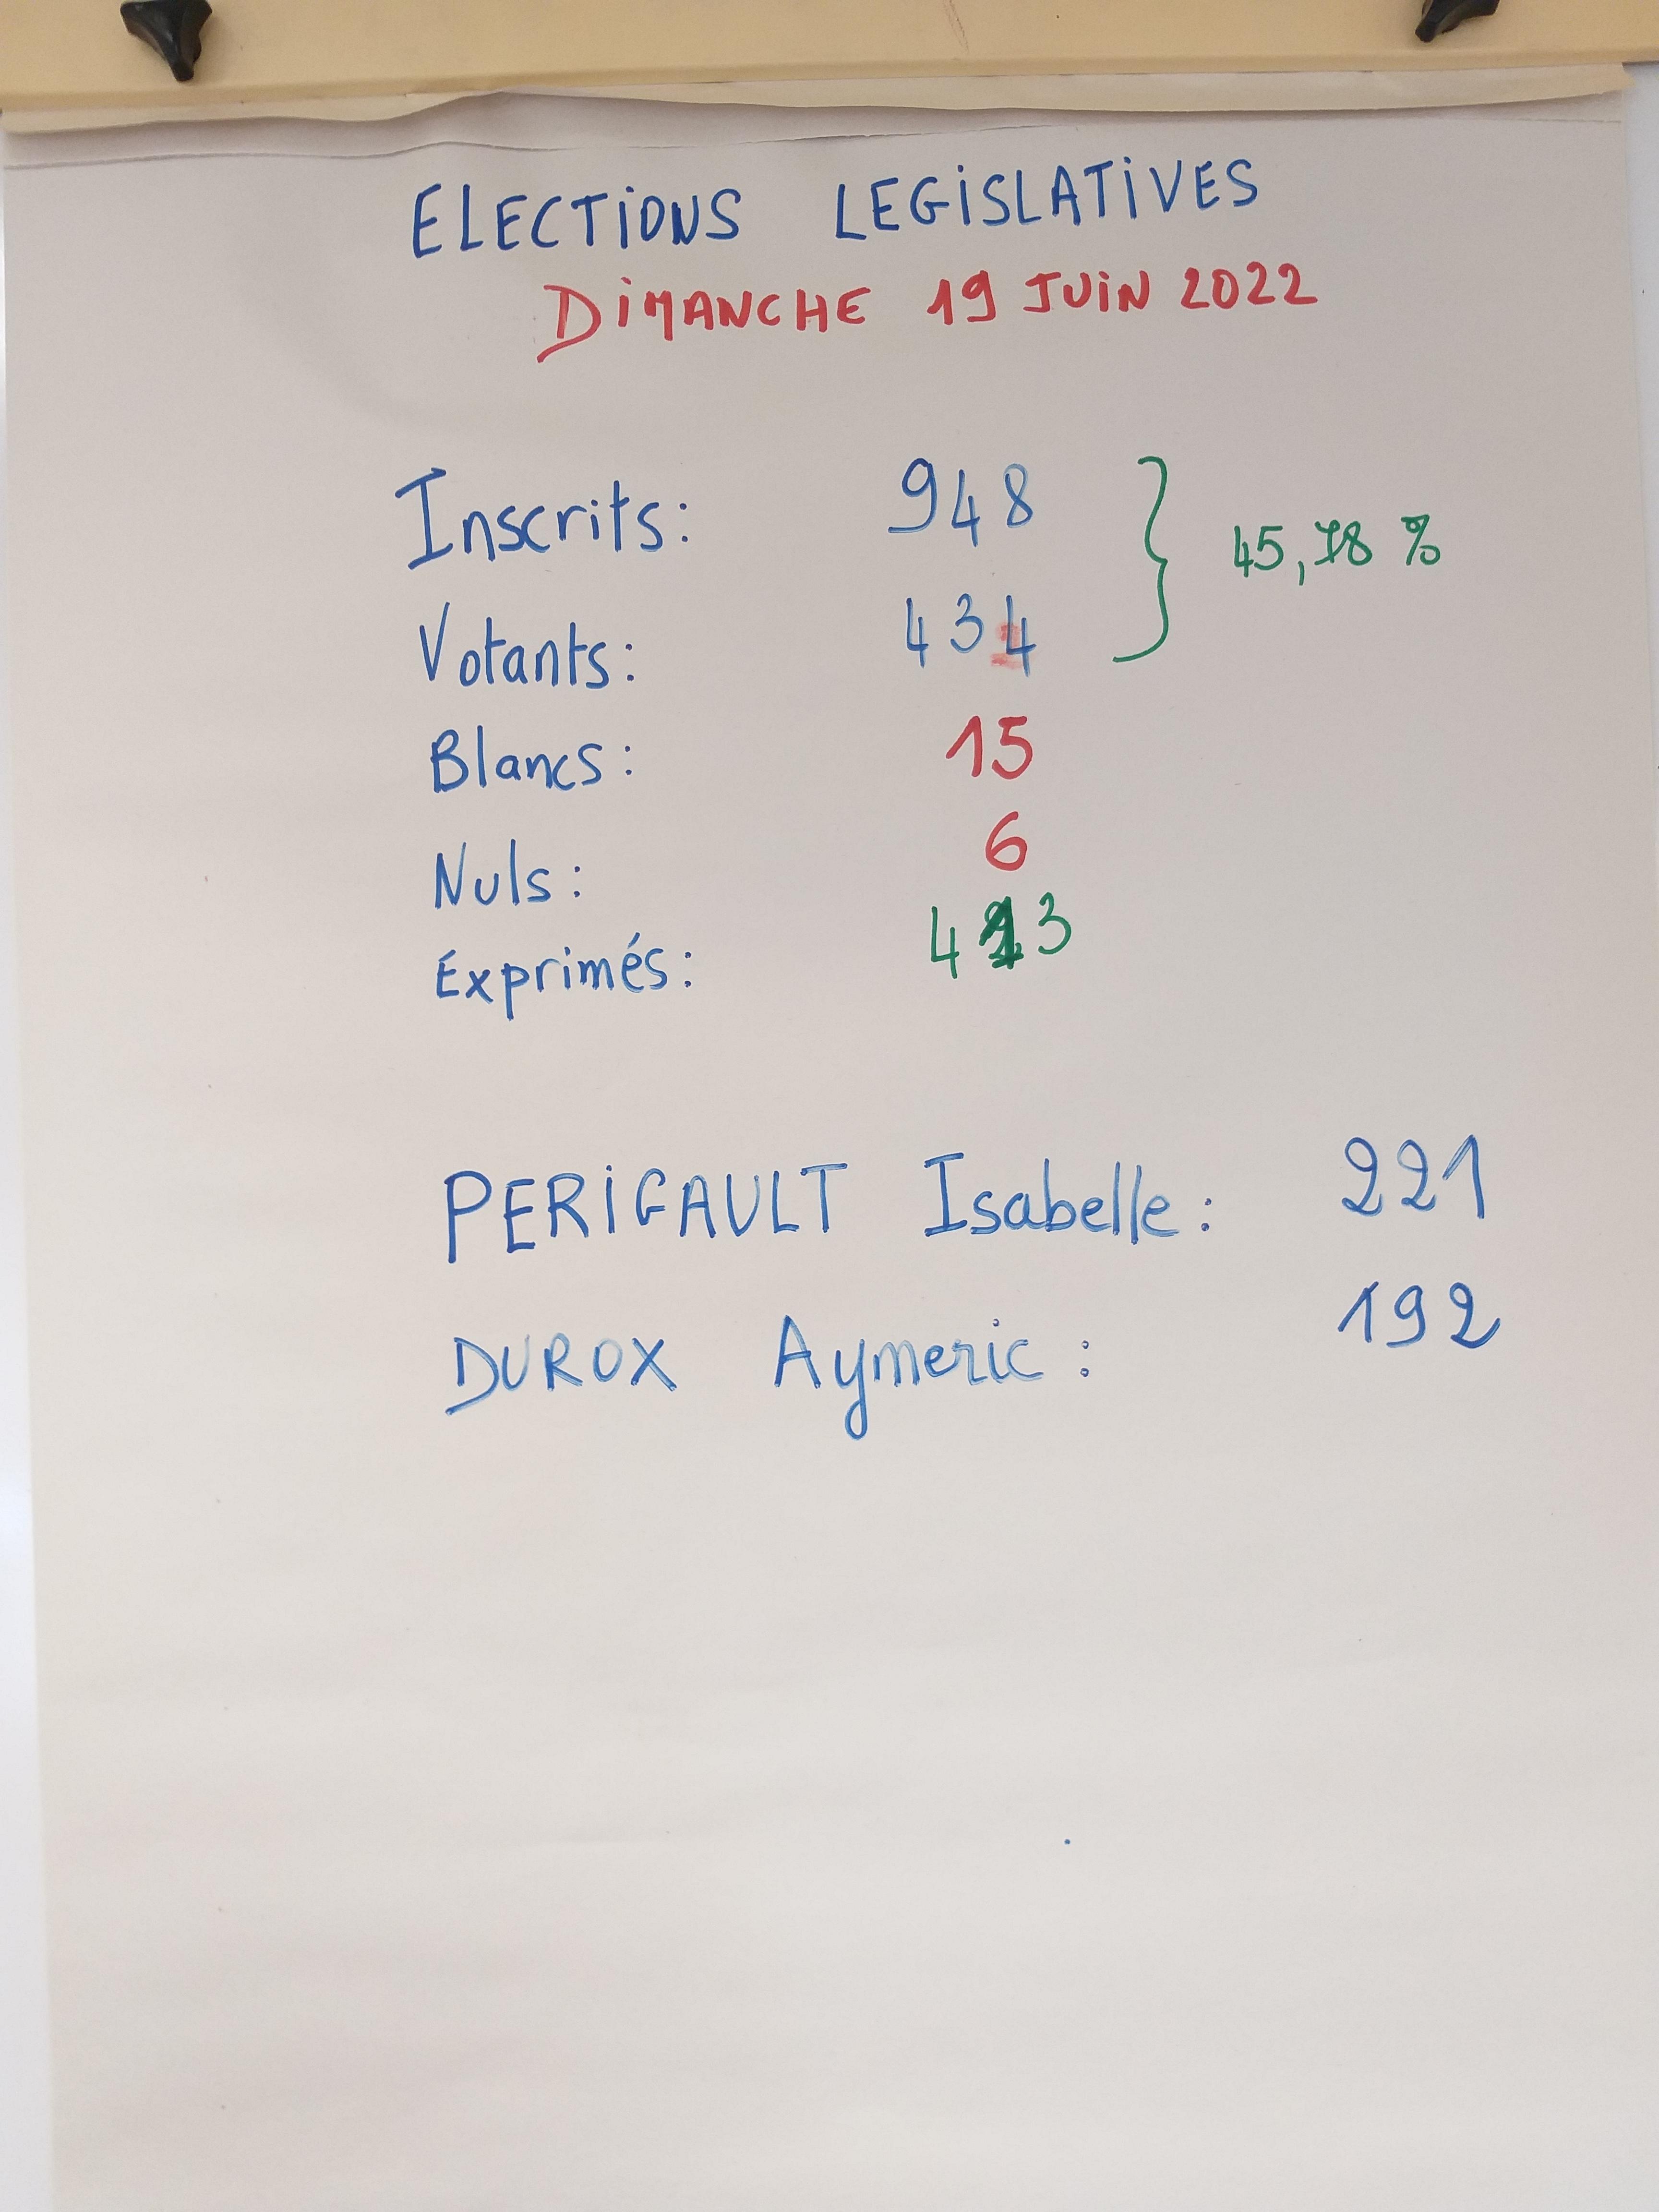 ELECTIONS LEGISLATIVES
DIMANCHE 19 JUIN 2022
Inscrits: 948
45,78 %
Votants: 434
Blancs: 15
Nuls: 6
Exprimés: 413
PERIGAULT Isabelle: 221
DUROX Aymeric: 192